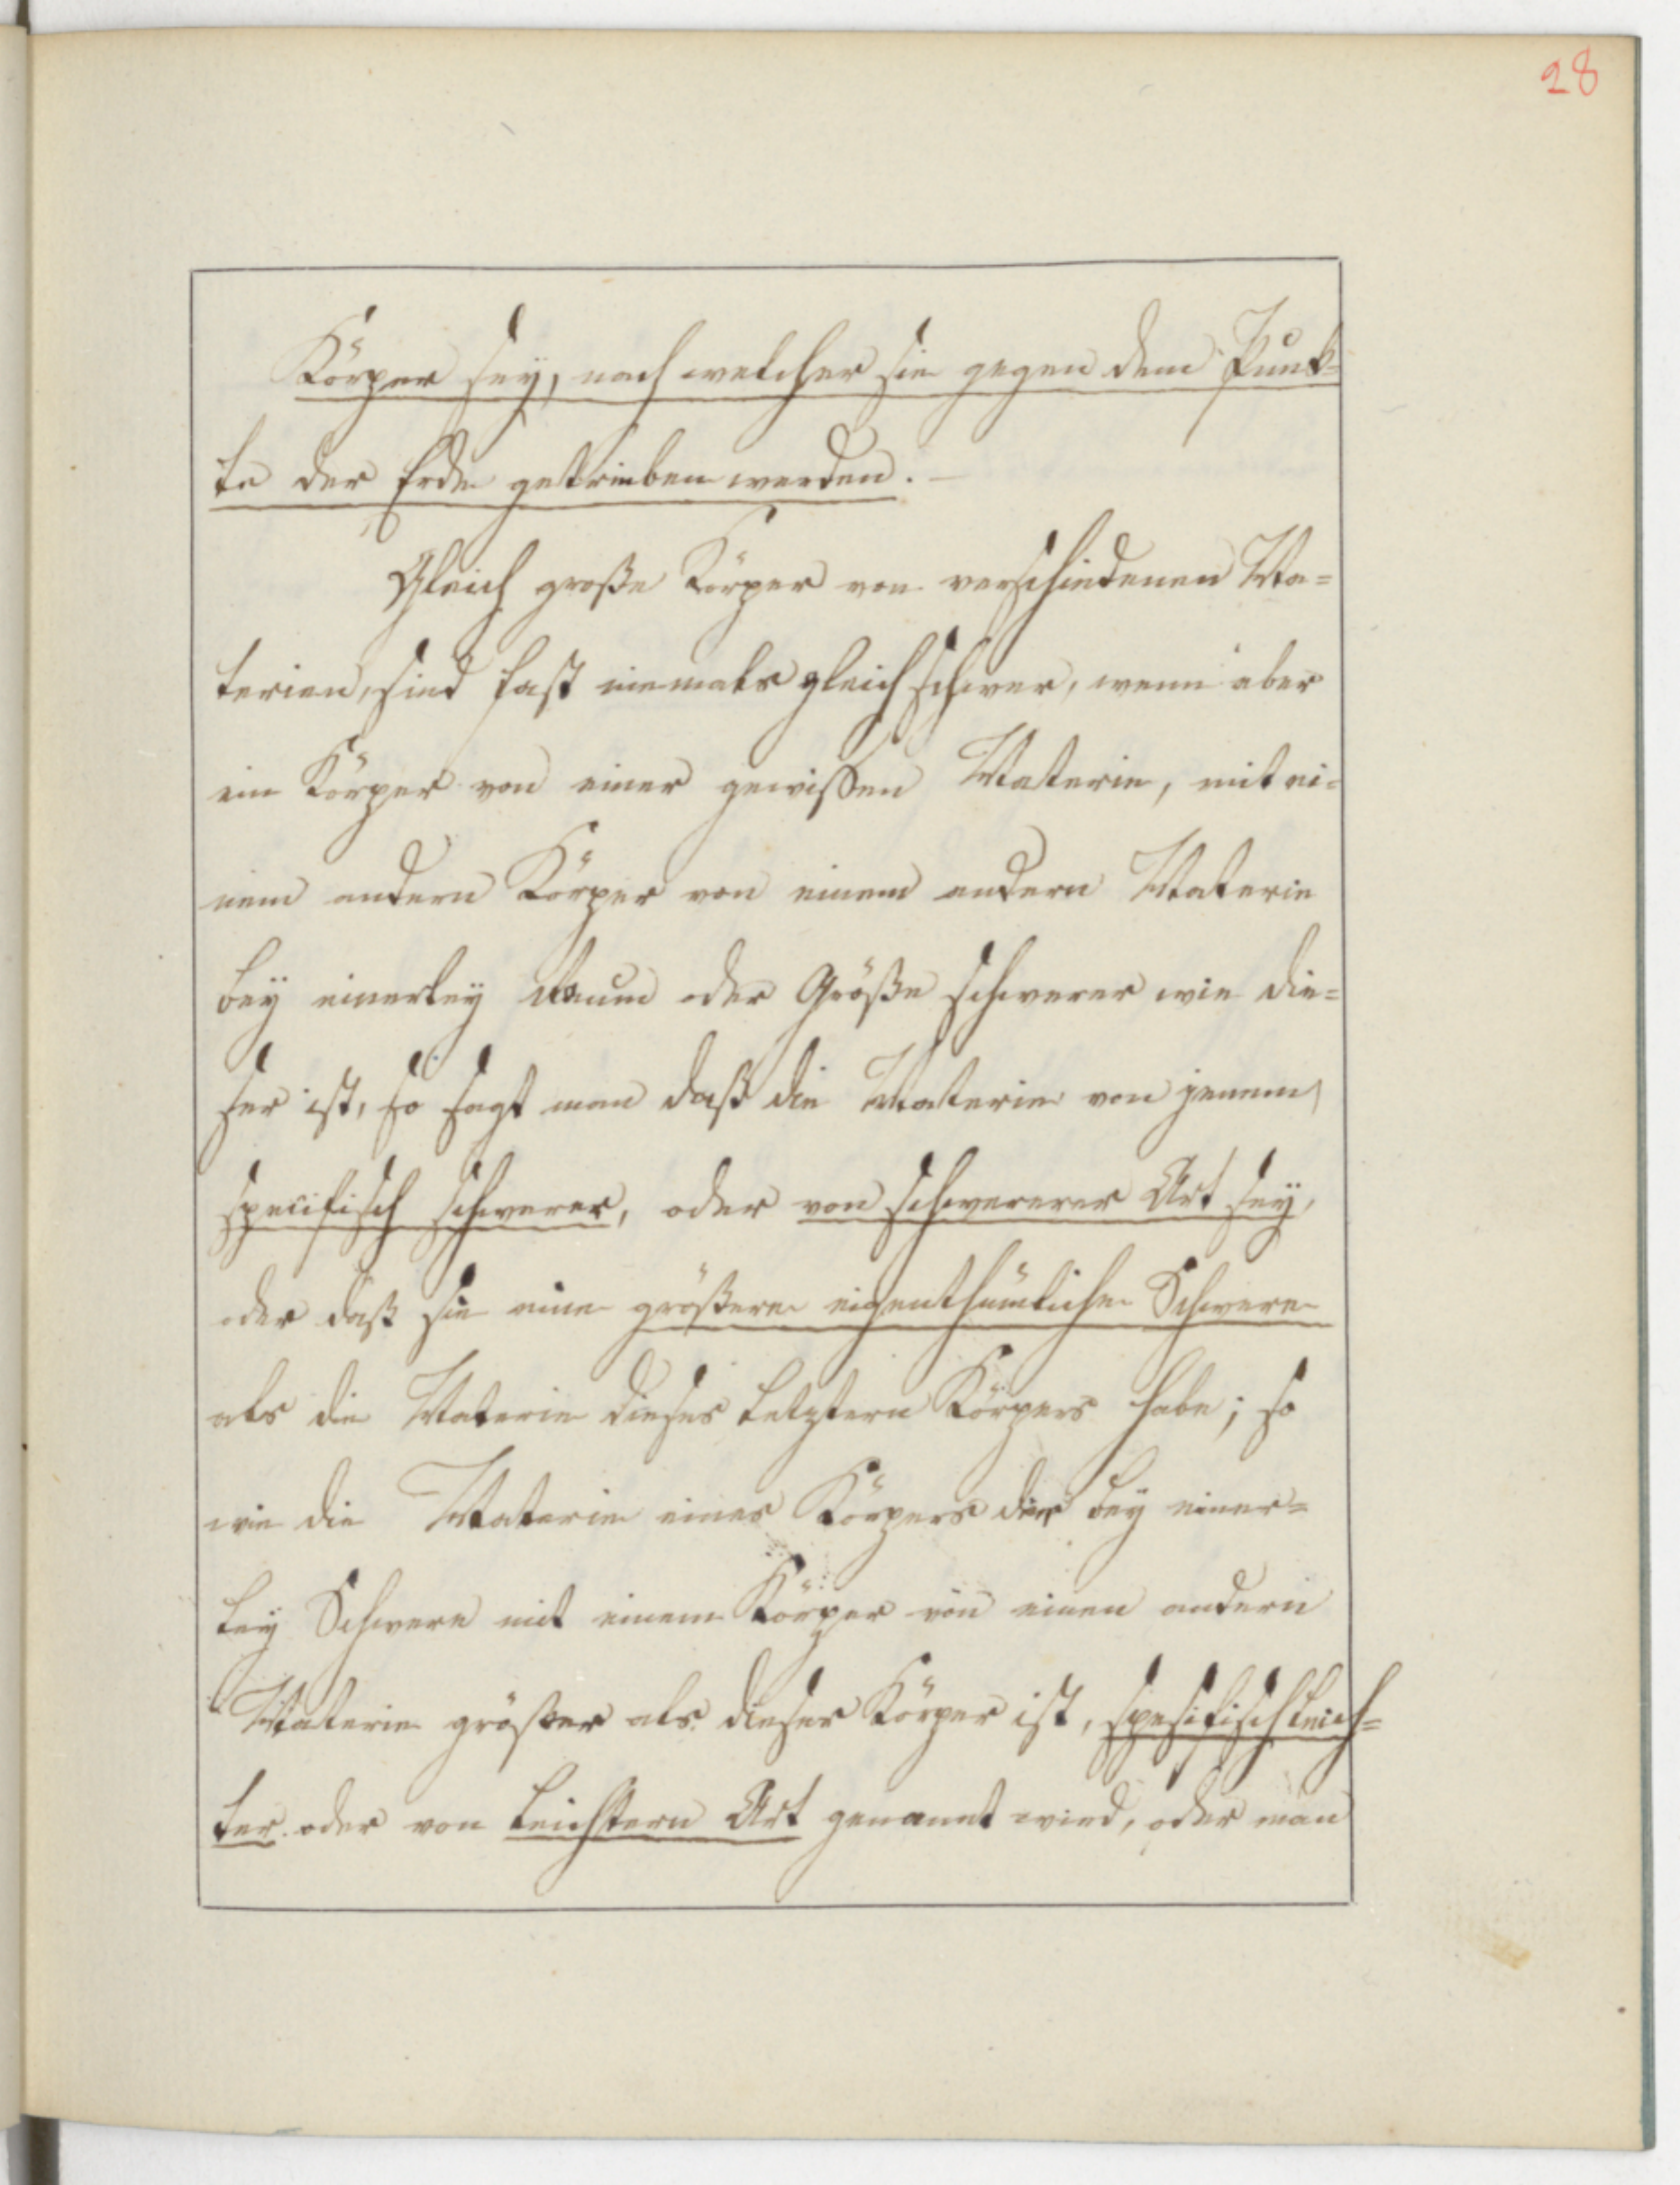 28
Körper sey, nach welcher sie gegen dem Punk=
te der Erde getrieben werden. —
Gleich große Körper von verschiedenen Ma=
terien, sind fast niemals gleich schwer, wenn aber
ein Körper von einer gewissen Materie, mit ei=
nem andern Körper von einem andern Materie
bey einerley Raum oder Größe schwerer wie die=
ser ist, so sagt man daß die Materie von jenem
specifisch schwerer, oder von schwererer Art sey,
oder daß sie eine größere eigenthümliche Schwere
als die Materie dieses letztern Körpers habe; so
wie die Materie eines Körpers der bey einer=
ley Schwere mit einem Körper von einen andern
Materie größer als dieser Körper ist, spesifisch leich=
ter oder von leichtern Art genannt wird, oder man